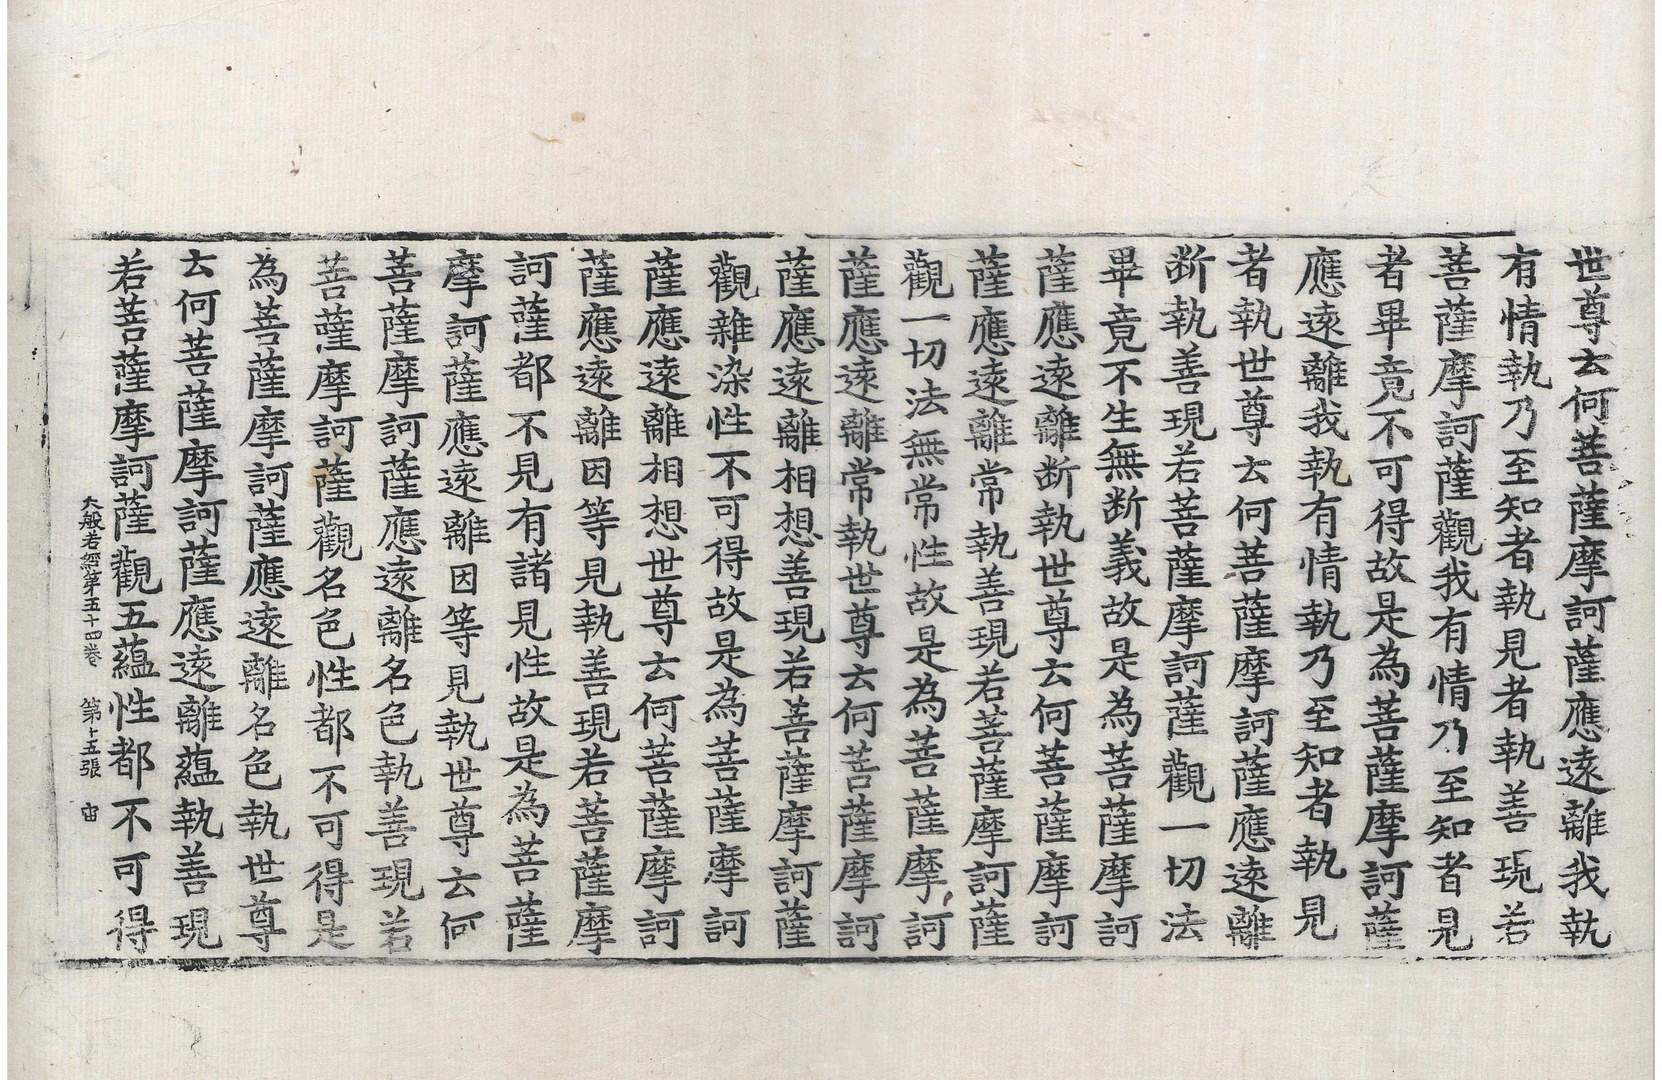 世尊云何菩薩摩訶薩應遠離我執
有情執乃至知者執見者執善現若
菩薩摩訶薩觀我有情乃至知者見
者畢竟不可得故是為菩薩摩訶薩
應遠離我執有情執乃至知者執見
者執世尊云何菩薩摩訶薩應遠離
断執善現若菩薩摩訶薩觀一切法
畢竟不生無断義故是為菩薩摩訶
薩應遠離断執世尊云何菩薩摩訶
薩應遠離常執善現若菩薩摩訶薩
觀一切法無常性故是為菩薩摩訶
薩應遠離常執世尊云何菩薩摩訶
薩應遠離相想善現若菩薩摩訶薩
觀雜染性不可得故是為菩薩摩訶
薩應遠離相想世尊云何菩薩摩訶
薩應遠離因等見執善現若菩薩摩
訶薩都不見有諸見性故是為菩薩
摩訶薩應遠離因等見執世尊云何
菩薩摩訶薩應遠離名色執善現若
菩薩摩訶薩觀名色性都不可得是
為菩薩摩訶薩應遠離名色執世尊
云何菩薩摩訶薩應遠離蘊執善現
若菩薩摩訶薩觀五蘊性都不可得
大般若經第五十四卷 第十五張 宙